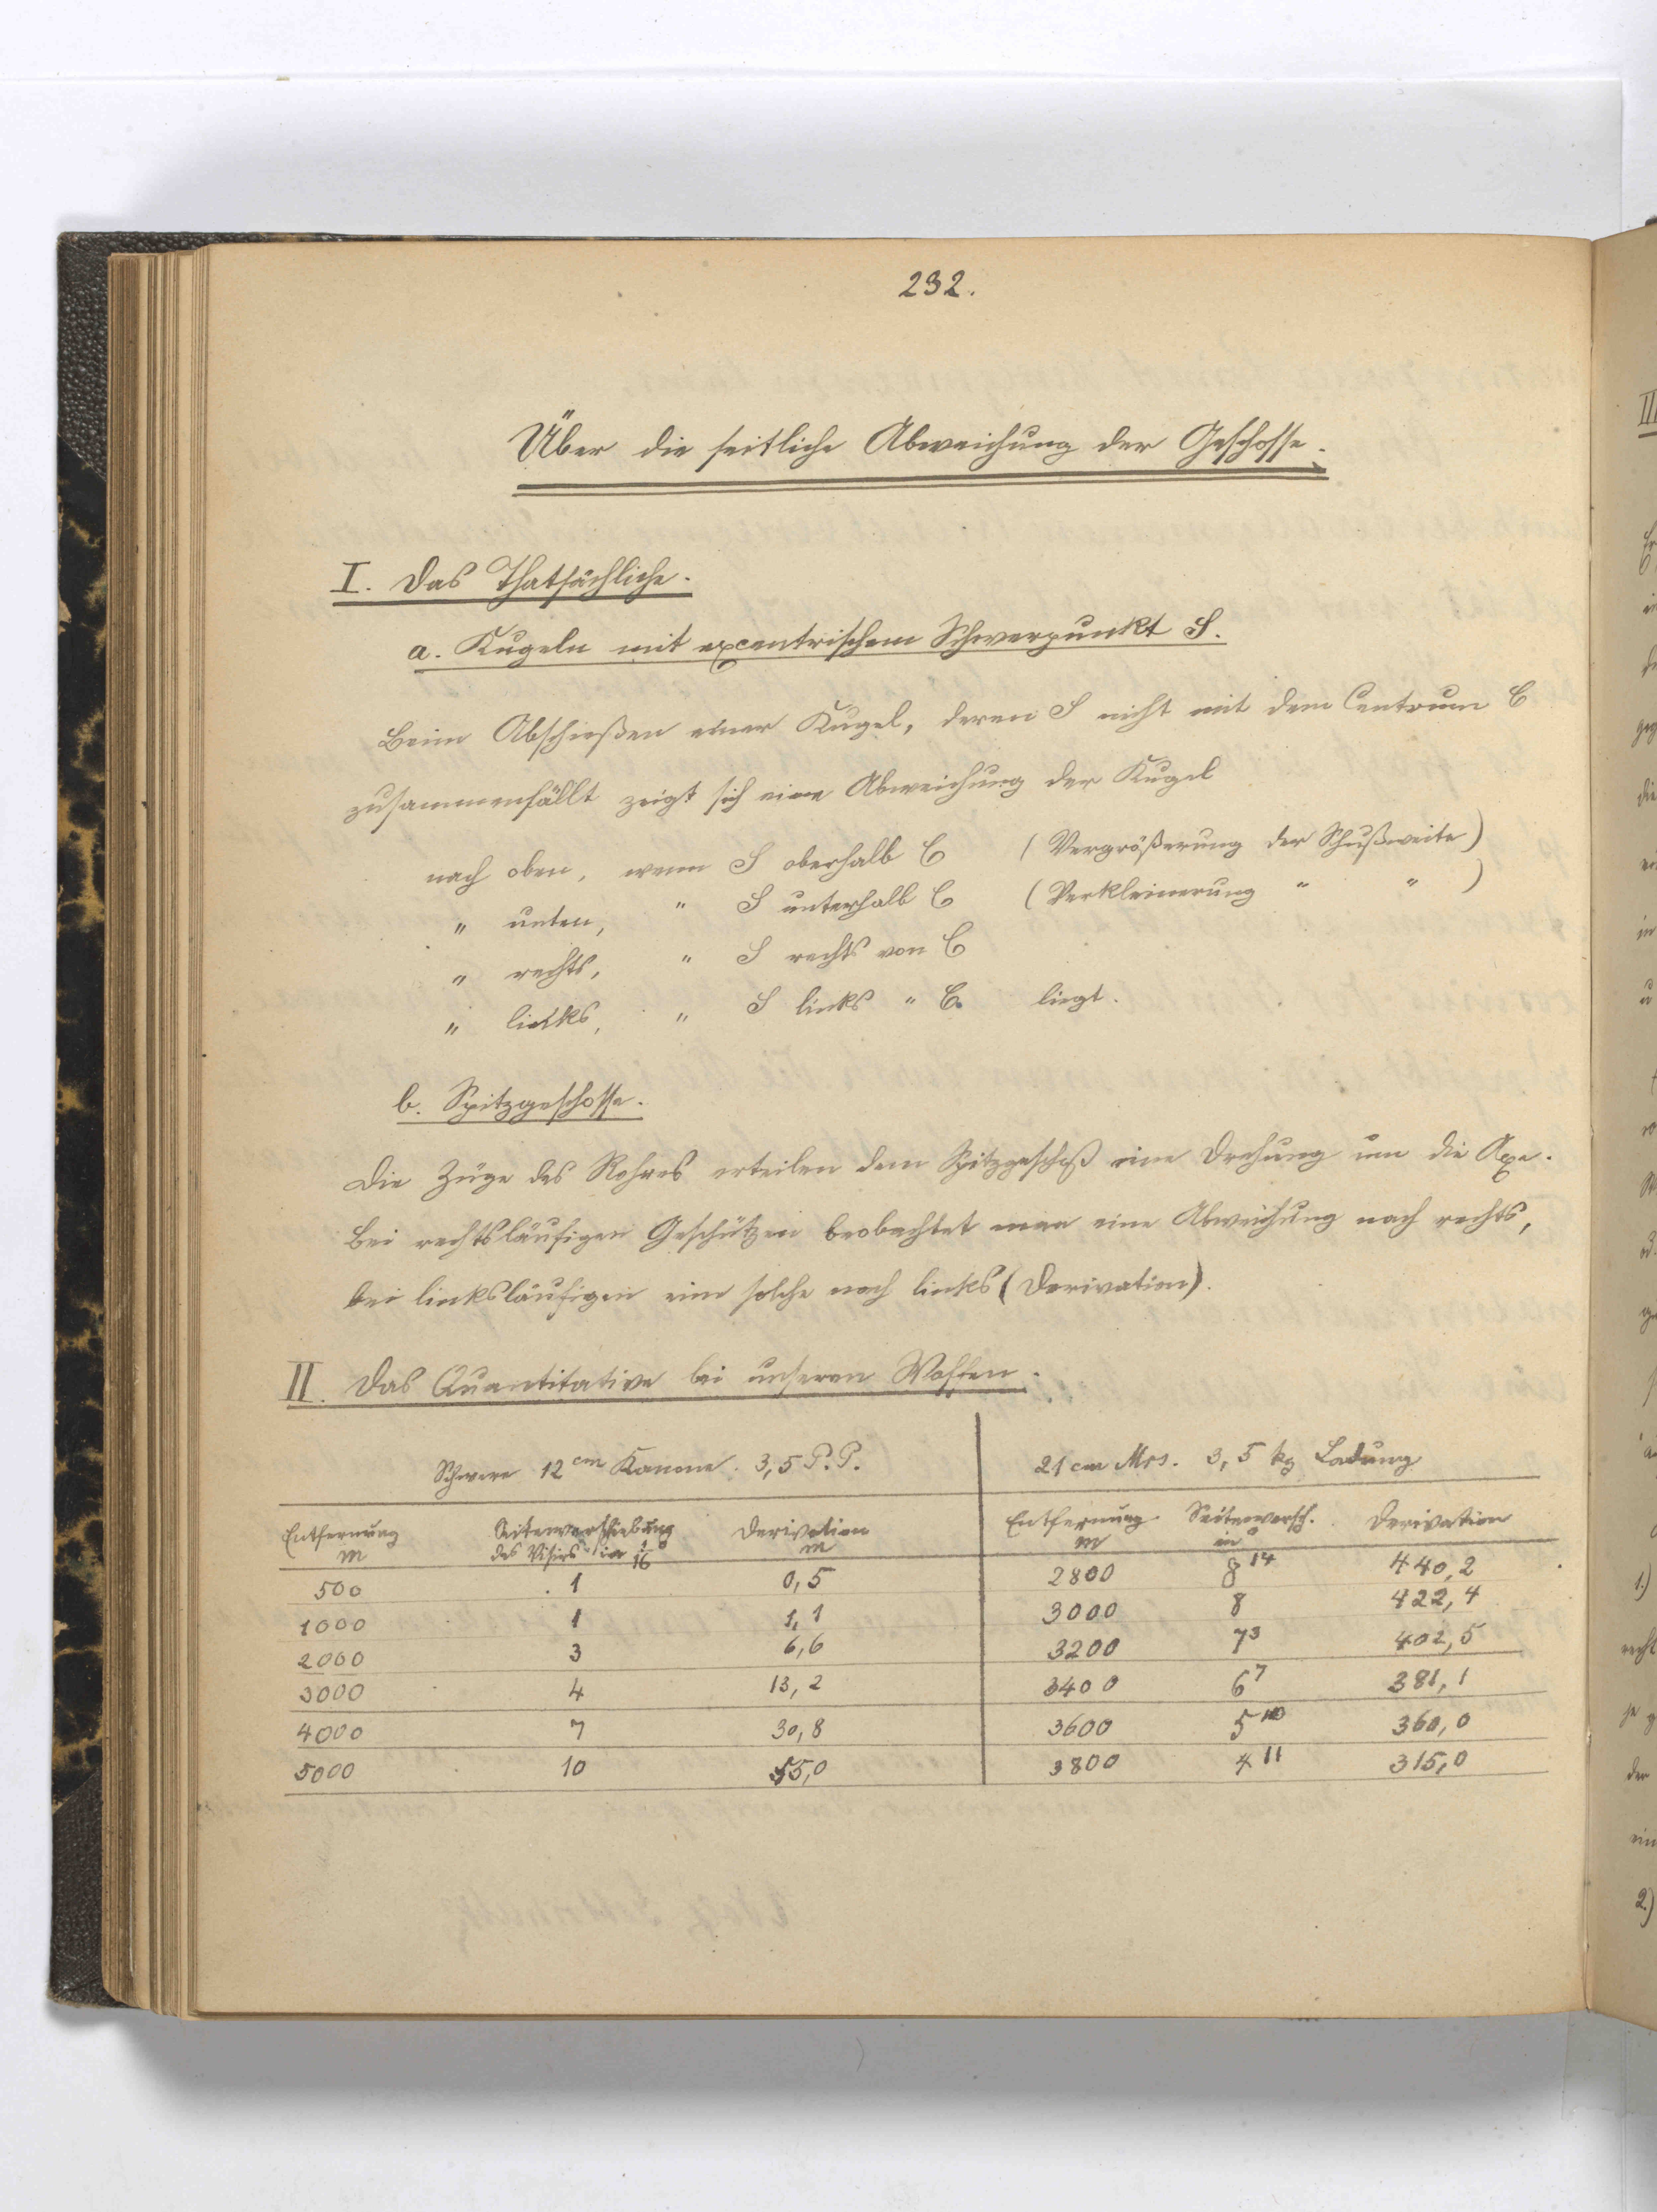 232.
Über die seitliche Abweichung der Geschosse.
I. Das Thatsächliche.
a. Kugeln mit excentrischem Schwerpunkt S.
Beim Abschießen einer Kugel, deren S nicht mit dem Centrum C
zusammenfällt zeigt sich eine Abweichung der Kugel
nach oben, wenn S oberhalb C (Vergrößerung der Schußweite)
" unten, " S unterhalb C (Verkleinerung " ")
" rechts, " S rechts von C
" links, " S links " C. liegt.
b. Spitzgeschosse.
Die Züge des Rohres erteilen dem Spitzgeschoß eine Drehung um die Axe.
Bei rechtsläufigen Geschützen beobachtet man eine Abweichung nach rechts,
bei linksläufigen eine solche nach links (Derivation).
II. Das Quantitative bei unseren Waffen.
Schwere 12 cm Kanone. 3,5 P.P. 21 cm Mrs. 3,5 kg Ladung
Entfernung Seitenverschiebung Derivation Entfernung Seitenversch. Derivation
m des Visirs in 1/16° m m in °
500 1 0,5 2800 8 14 440,2
1000 1 1,1 3000 8 422,4
2000 3 6,6 3200 7 3 402,5
3000 4 13,2 3400 6 7 381,1
4000 7 30,8 3600 5 10 360,0
5000 10 55,0 3800 4 11 315,0